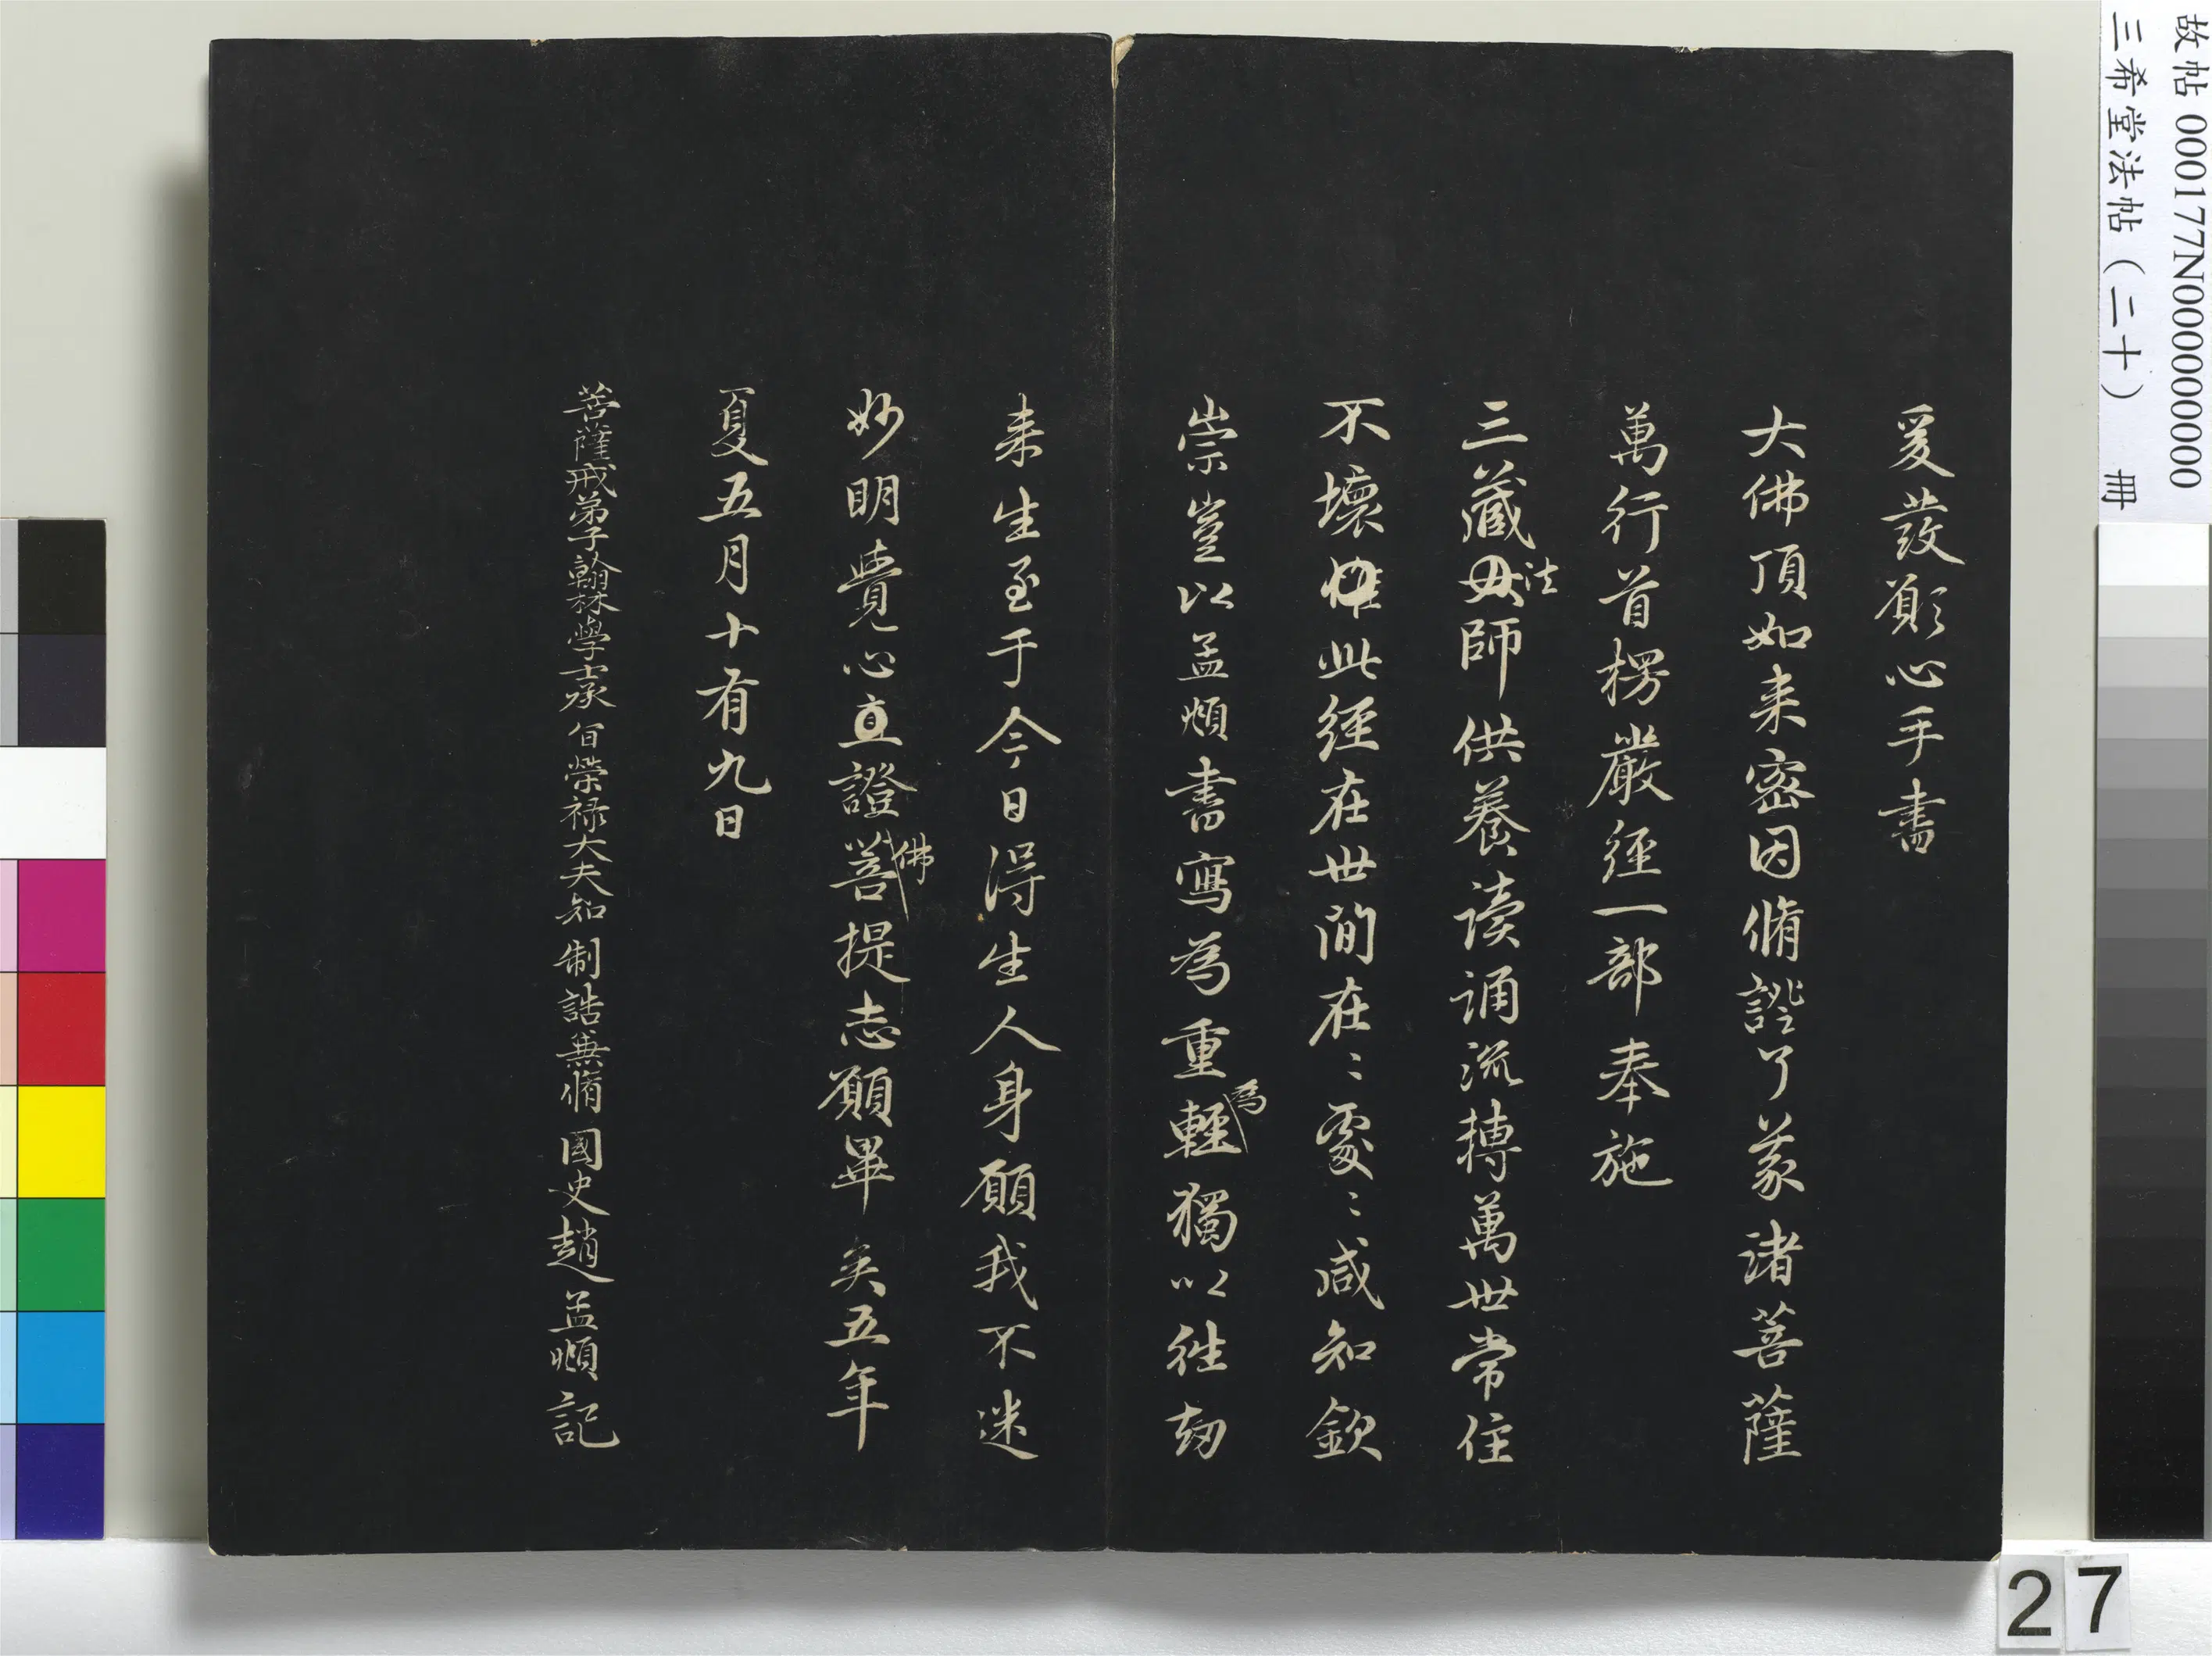 故帖 000177N000000000
三希堂法帖（二十） 冊
爰發願心手書
大佛頂如来密因脩證了義諸菩薩
萬行首楞嚴經一部奉施
三藏法師供養读誦流摶萬世常住
不壞惟此經在世间在〻處〻咸知欽
崇豈以孟頫書寫為重為輕獨以往劫
来生至于今日得生人身願我不迷
妙明覺心直證佛菩提志願畢矣五年
夏五月十有九日
菩薩戒弟子翰林學士承旨榮禄大夫知制誥兼脩國史趙孟頫記
27